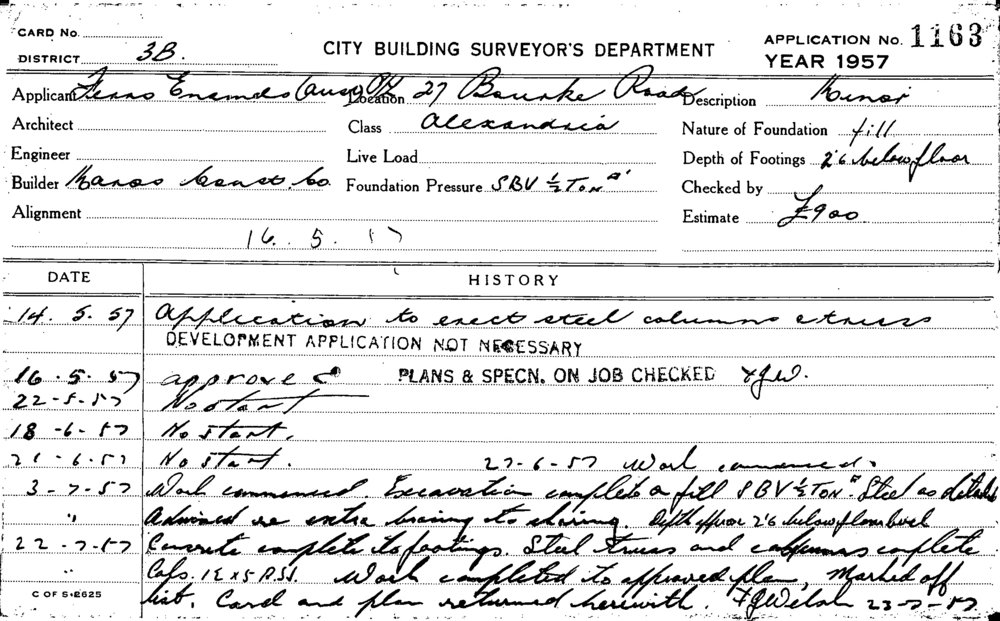 CARD No.
DISTRICT 3B.
CITY BUILDING SURVEYOR'S DEPARTMENT
APPLICATION No. 1163
YEAR 1957
Applicant Ferro Enamels (Aust) P/L Location 27 Bourke Road Description Minor
Architect Class Alexandria Nature of Foundation fill
Engineer Live Load Depth of Footings 2'6 below floor
Builder Const. Co. Foundation Pressure SBV ½ Ton □' Checked by
Alignment Estimate £900
16. 5. 57
DATE HISTORY
14. 5. 57 Application to erect steel columns & truss
DEVELOPMENT APPLICATION NOT NECESSARY
16-5-57 approved PLANS & SPECN. ON JOB CHECKED FJW.
22-5-57 No start
18-6-57 No start.
21-6-57 No start. 27-6-57 Work commenced.
3-7-57 Work commenced. Excavation complete on fill SBV ½ TON □' Steel as detailed
" Advised re extra bracing to shoring. Depth approx 2'6 below floor level
22-7-57 Concrete complete to footings. Steel truss and columns complete
" Cols. 12 x 5 R.S.J. Work completed to approved plan, marked off
list. Card and plan returned herewith. FJWelsh 23-7-57
C OF S 2625